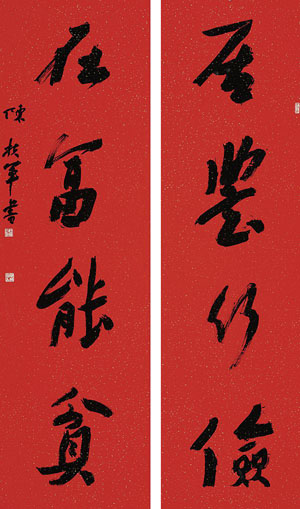 居豐行儉
在富能貧
陳軍書